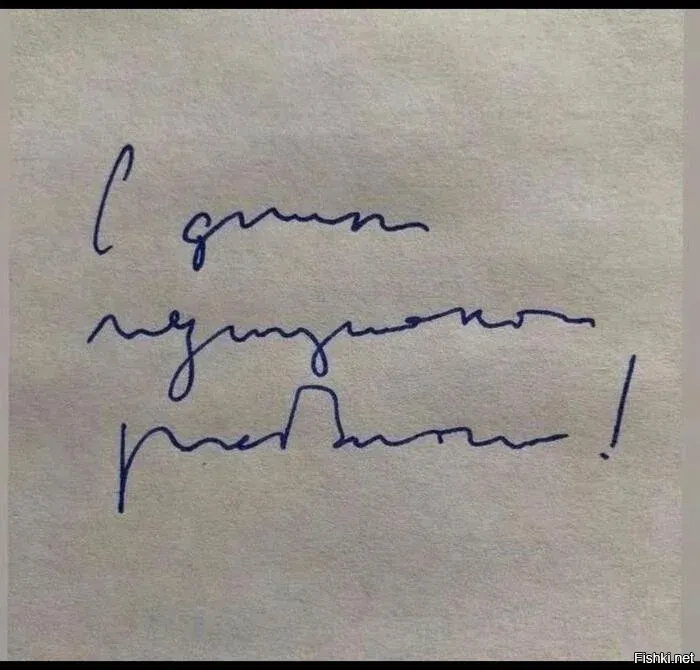 С днем
медицинского
работника!
Fishki.net